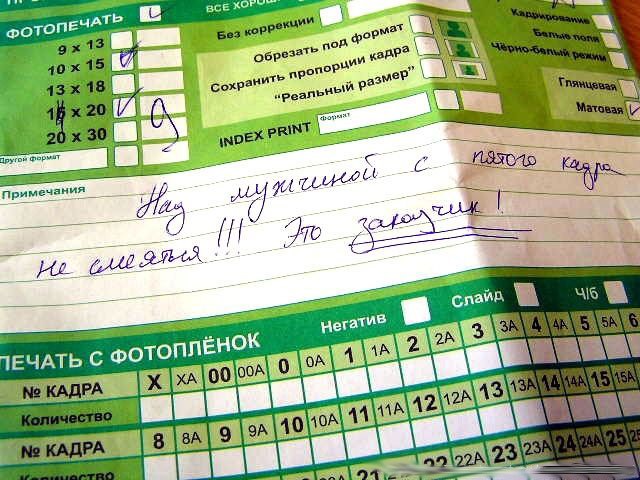 ВСЕ ХОРОШ
ФОТОПЕЧАТЬ
9 x 13
10 x 15
13 x 18
20
20 x 30
Другой формат
9
Без коррекции
Обрезать под формат
Сохранить пропорции кадра
"Реальный размер"
INDEX PRINT
Формат
Кадрирование
Белые поля
Чёрно-белый режим
Глянцевая
Матовая
Примечания
Над мужчиной с пятого кадра
не смеяться!!! Это заказчик!
Негатив
Слайд
Ч/б
ПЕЧАТЬ С ФОТОПЛЁНОК
№ КАДРА X XA 00 00A 0 0A 1 1A 2 2A 3 3A 4 4A 5 5A 6
Количество
№ КАДРА 8 8A 9 9A 10 10A 11 11A 12 12A 13 13A 14 14A 15 15A
Количество
21 22 22A 23 23A 24 24A 25